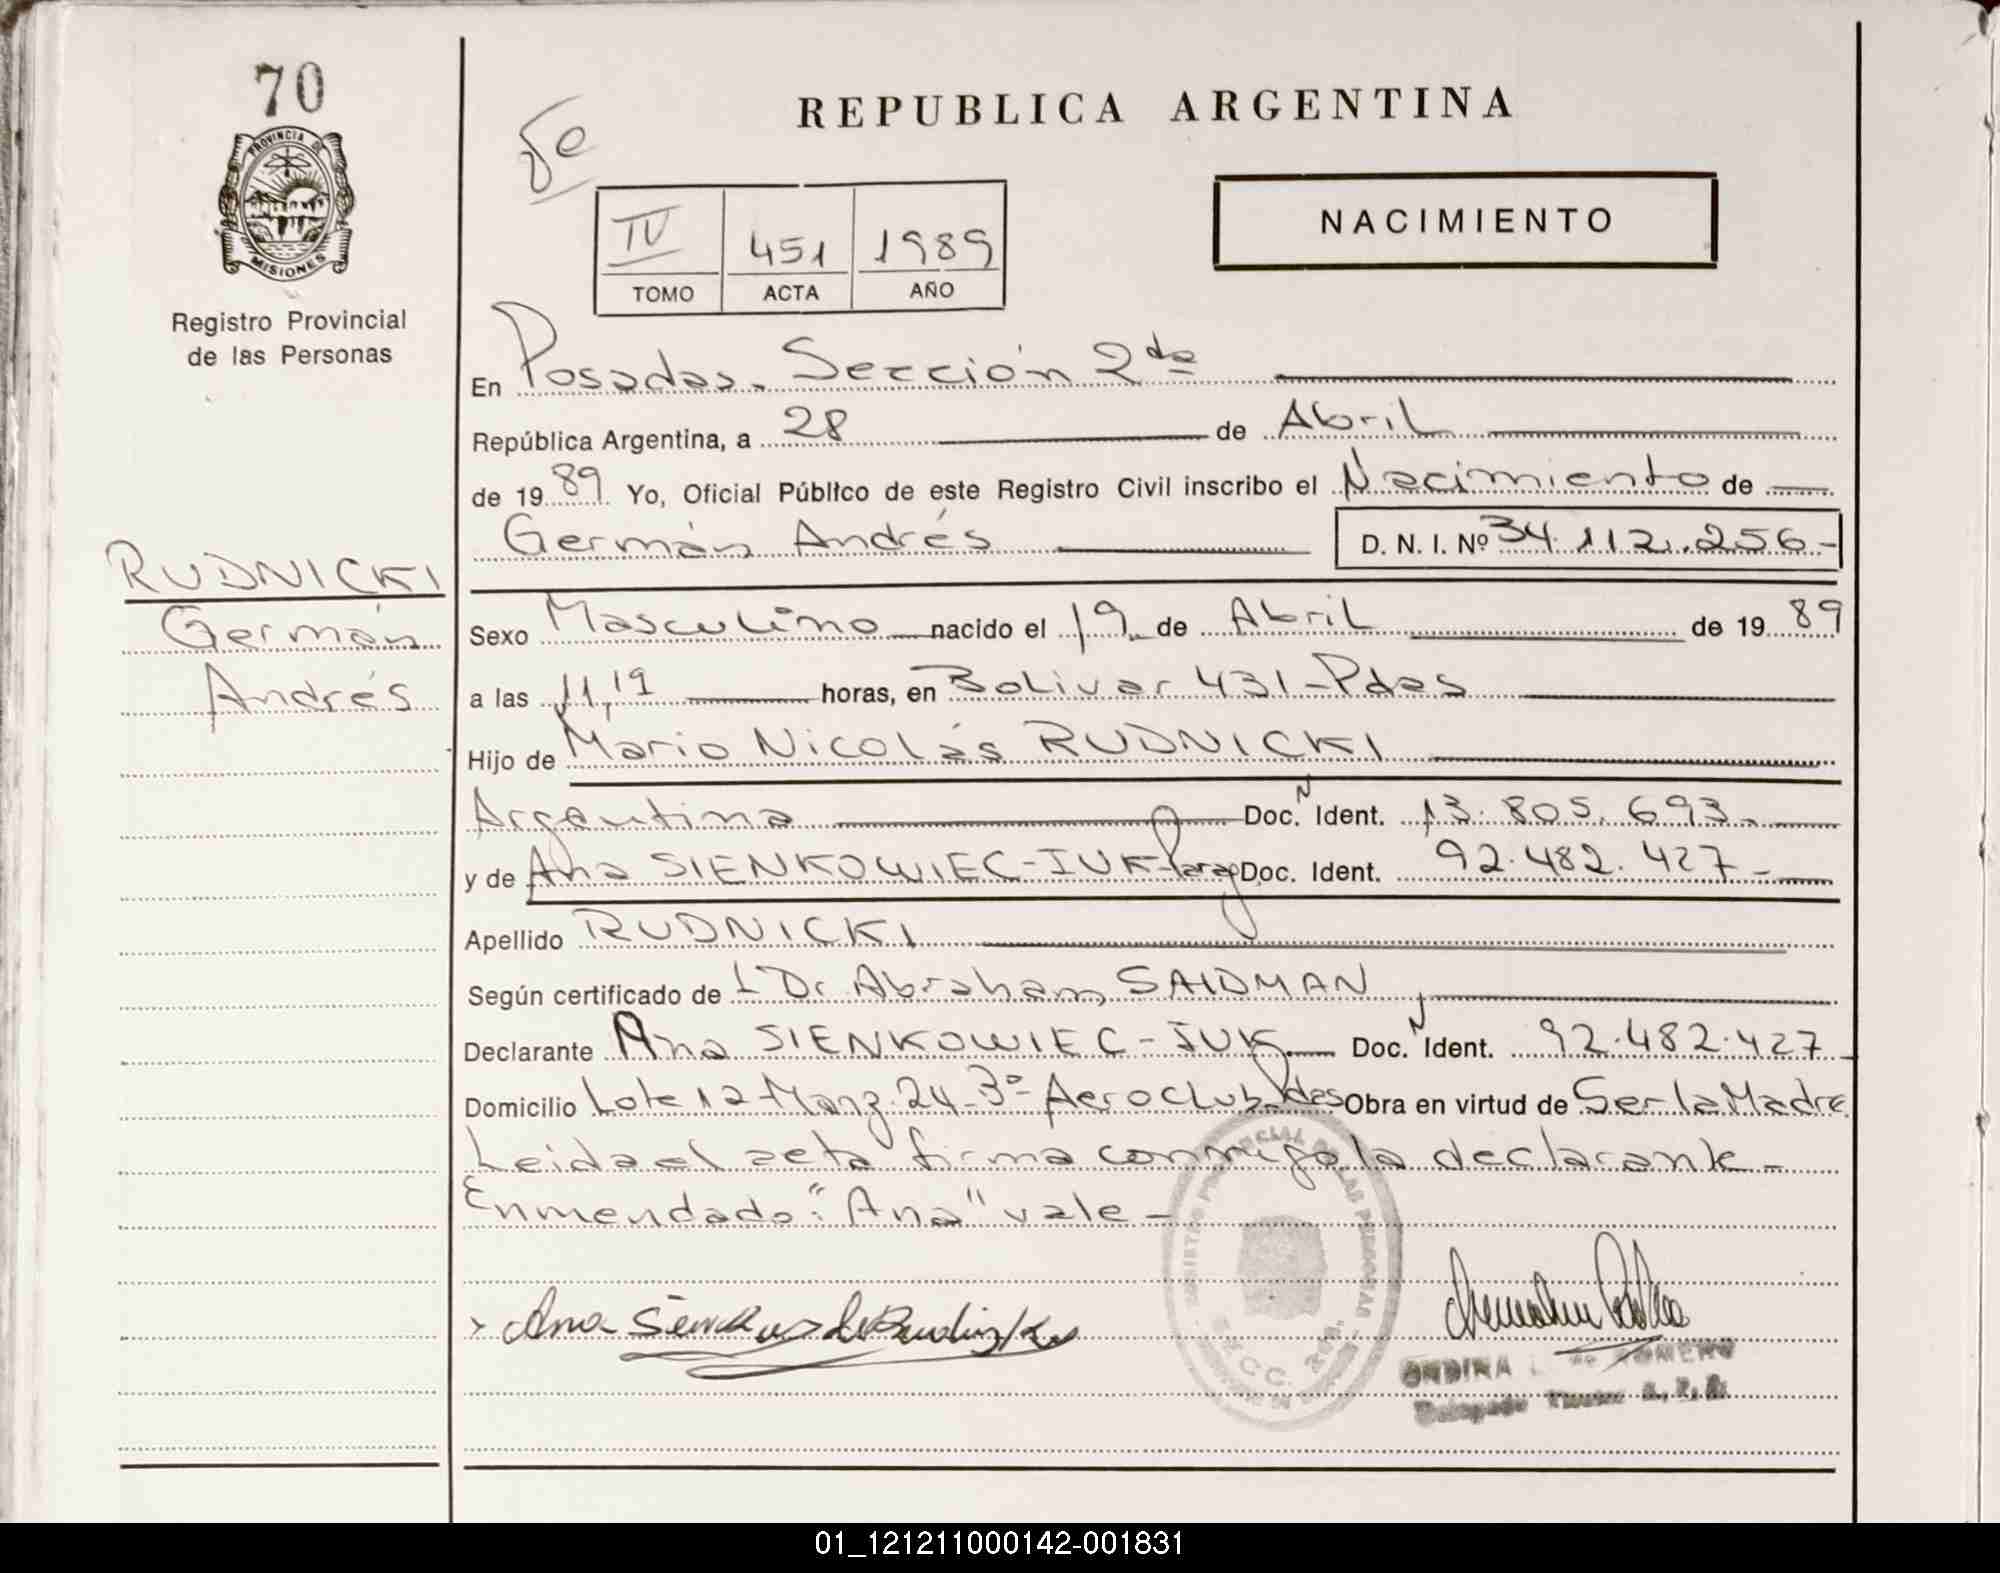 70
PROVINCIA DE
MISIONES
Registro Provincial
de las Personas
REPUBLICA ARGENTINA
NACIMIENTO
IV 451 1989
TOMO ACTA AÑO
En Posadas. Sección 2da
República Argentina, a 28 de Abril
de 1989 Yo, Oficial Público de este Registro Civil inscribo el Nacimiento de
Germán Andrés D. N. I. Nº 34.112.256-
RUDNICKI
Germán
Andrés
Sexo Masculino nacido el 19 de Abril de 1989
a las 11,19 horas, en Bolivar 431-Pdas
Hijo de Mario Nicolás RUDNICKI
Argentina Doc. N Ident. 13.805.693.-
y de Ana SIENKOWIEC-IUK-Parag Doc. Ident. 92.482.427-
Apellido RUDNICKI
Según certificado de L Dr. Abraham SAIDMAN
Declarante Ana SIENKOWIEC-IUK Doc. N Ident. 92.482.427-
Domicilio Lote 12-Manz.24-3º-Aeroclub.Pdas Obra en virtud de Ser la Madre
Leida el acta firma conmigo la declarante-
Enmendado: "Ana" vale-
ONDINA ROMERO
01_121211000142-001831